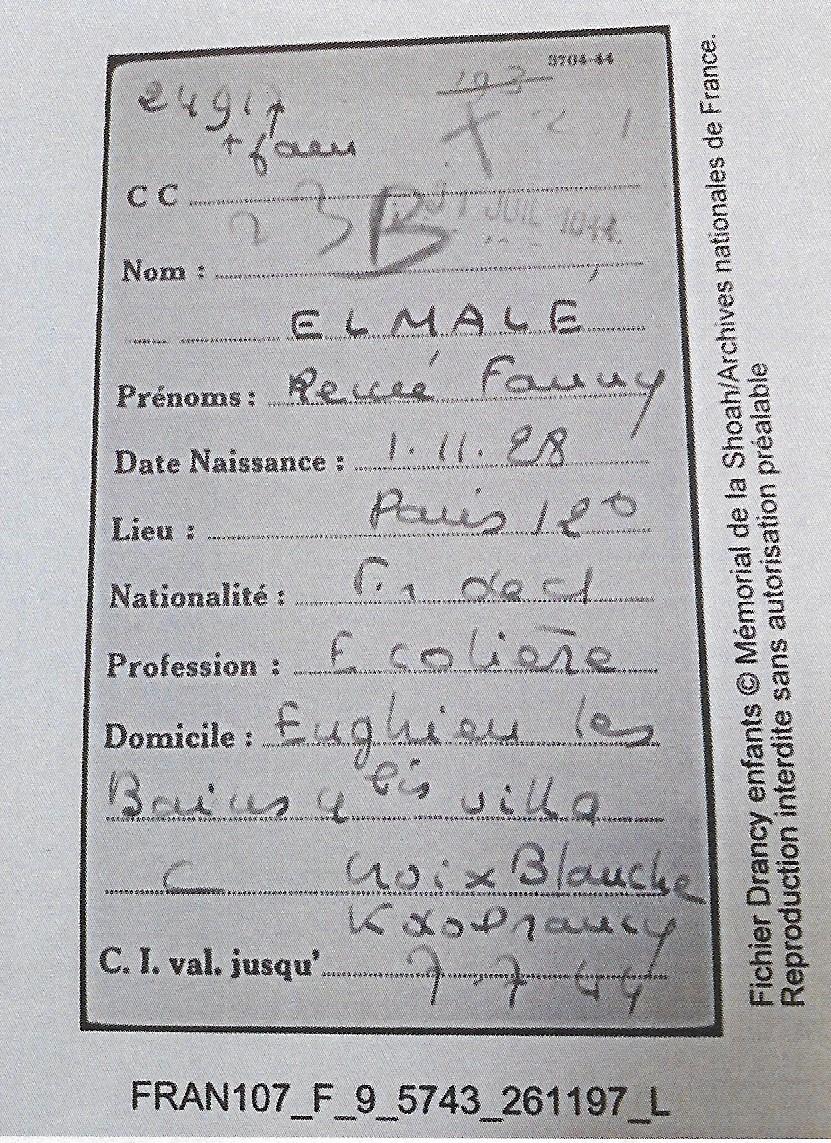 3704-44
24917
+ fam
193
C C
31 JUIL 1944
B
Nom :
ELMALÉ
Prénoms : Renée Fanny
Date Naissance : 1. 11. 28
Lieu : Paris 12°
Nationalité : Fr decl
Profession : Ecolière
Domicile : Enghien les
Bains 4 bis villa
Croix Blanche
Drancy
C. I. val. jusqu' 7-7 44
Fichier Drancy enfants © Mémorial de la Shoah/Archives nationales de France.
Reproduction interdite sans autorisation préalable
FRAN107_F_9_5743_261197_L